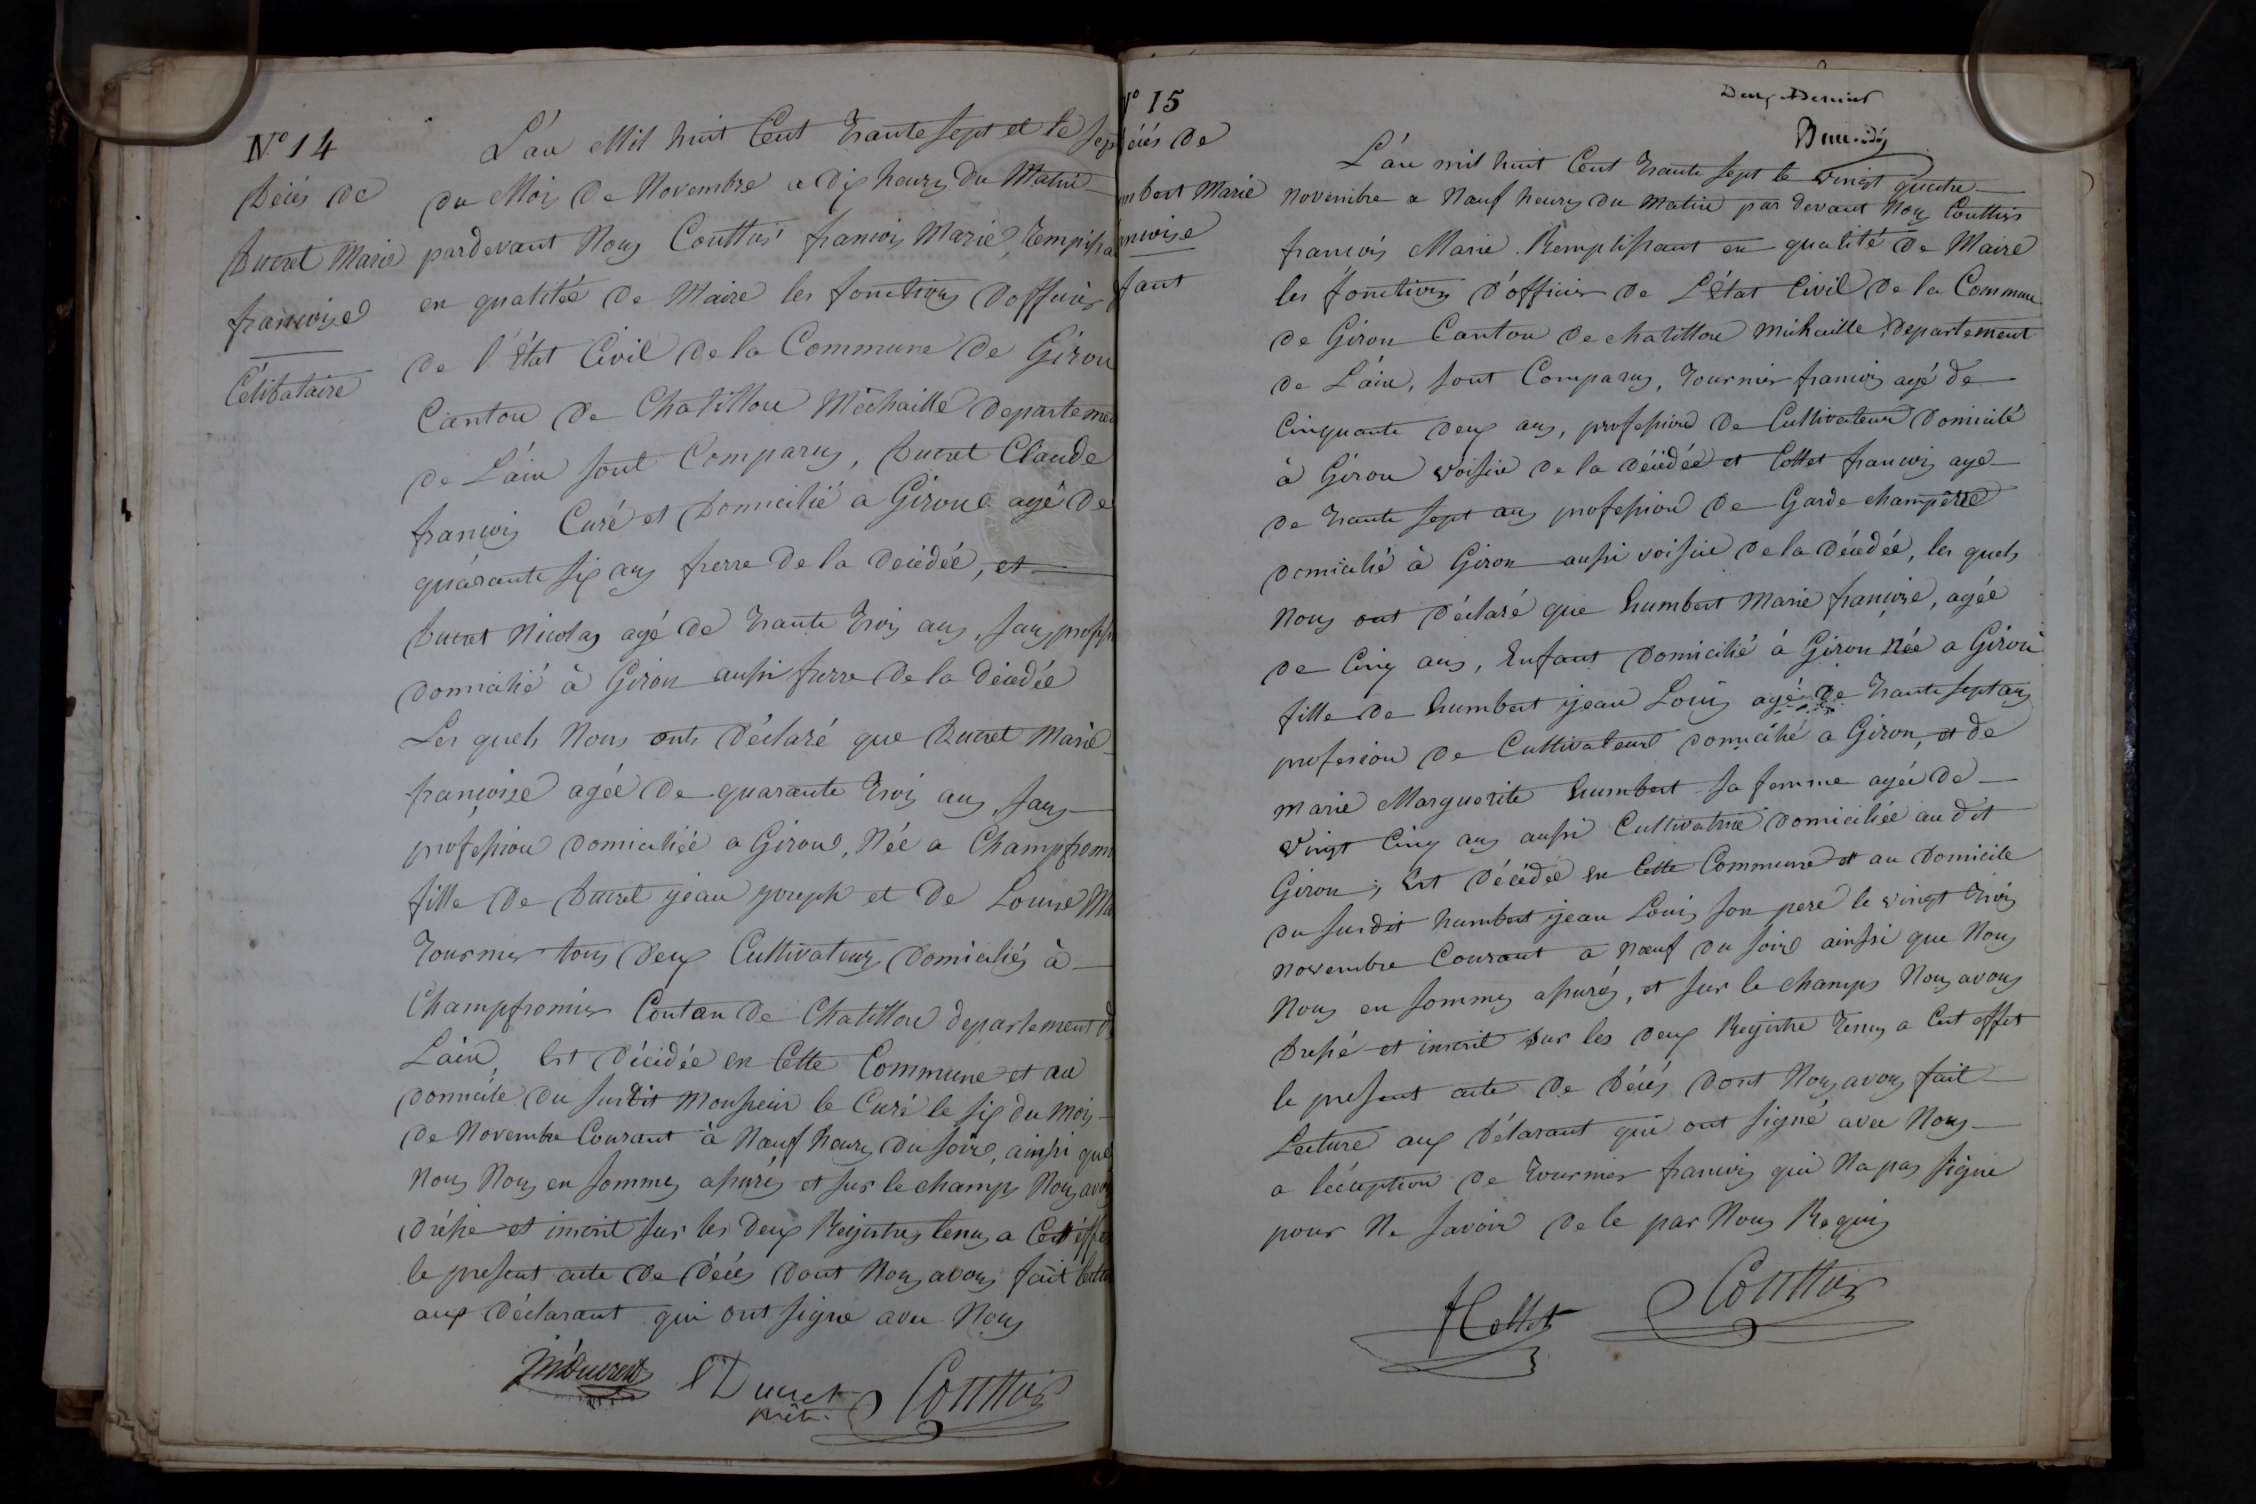 N° 14
Décés de
Ducret Marie
francoise
Célibataire
L'an Mil huit Cent Trante sept et le sep
du Mois de Novembre a dix heures du Matin
pardevant Nous Couttier francois Marie, Rempissa
en qualitée de Maire les fonctions d'officier
de l'État Civil de la Commune de Giron
Canton de Chatillon Michaille departemen
de L'ain sont Comparus, Ducret Claude
francois Curé et Domicilié a Giron agé de
quarante six ans frerre de la décédée, et
Ducret Nicolas agé de Trante Trois ans, sans profess
domicilié à Giron aussi frerre de la décédée
Les quels Nous onts déclaré que Ducret Marie
françoise agée de quarante Trois ans, sans
profession domiciliée a Giron, Née a Champfromi
fille de Ducret jean joseph et de Louise Ma
Tournier tous deux Cultivateurs domiciliés à
Champfromier Contan de Chatillon departement d
Lain, Est décédée en Cette Commune et au
domicile du susdit Monsieur le Curé le six du mois
de Novembre Courant à Nœuf heures du soire, ainssi que
Nous Nous en sommes assurés et sur le champs Nous avon
dréssé et inscrit sur les deux Registres tenus a Cett effe
le present acte de décés dont Nous avons fait lectu
aux déclarant qui ont signe avec Nous
Ducret
prêtre
Couttier
N° 15
écés de
mbert Marie
ncoise
fant
Deux Dernier
L'an mil huit Cent Trante sept le vingt quatre
Novembre a Nœuf heures du matin par devant Nous Couttier
francois Marie Remplissant en qualité de Maire
les fonctions d'officier de L'état Civil de la Commune
de Giron Canton de chatillon michaille departement
de L'ain, sont Comparus, Tournier francois agé de
Cinquante deux ans, profession de Cultivateur domicilé
à Giron voisin de la décédée et Collet francois age
de Trante sept ans profession de Garde champêtre
domicilié à Giron aussi voisin de la décédée, les quels
Nous ont déclaré que humbert Marie françoise, agée
de Cinq ans, Enfant domicilié à Giron Née a Giron
fille de humbert jean Louis agé de Trante sept ans
profession de Cultivateur domicilié a Giron, et de
marie Marguerite humbert sa femme agée de
vingt Cinq ans aussi Cultivatrice domiciliée au dit
Giron; Est décédée en Cette Commune et au domicile
du susdit humbert jean Louis son pere le vingt Trois
novembre Courant a nœuf du soire ainssi que Nous
Nous en sommes assurés, et sur le champs Nous avons
Dressé et inscrit sur les deux Registre Tenus a Cet effet
le present acte de Décés dont Nous avons fait
Lecture aux Délarant qui ont signé avec Nous
a lécception de Tournier francois qui Na pas signe
pour Ne savoir de le par Nous Requis
Collet
Couttier